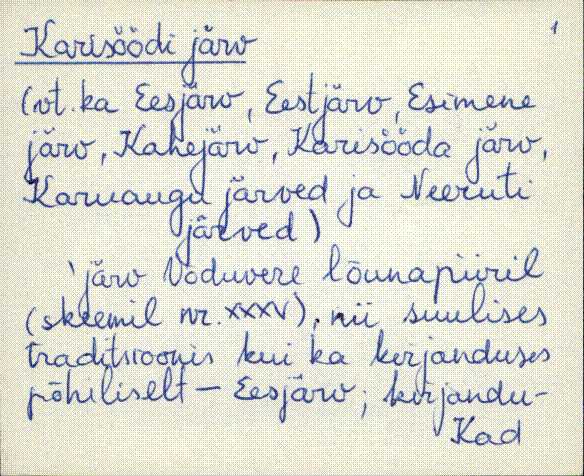 1
Karisöödi järv
(vt. ka Eesjärv, Eestjärv, Esimene
järv, Kahejärv, Karisööda järv,
Karuaugu järved ja Neeruti
järved)
'järv Voduvere lõunapiiril
(skeemil nr. XXXV), nii suulises
traditsioonis kui ka kirjanduses
põhiliselt — Eesjärv; kirjandu-
Kad